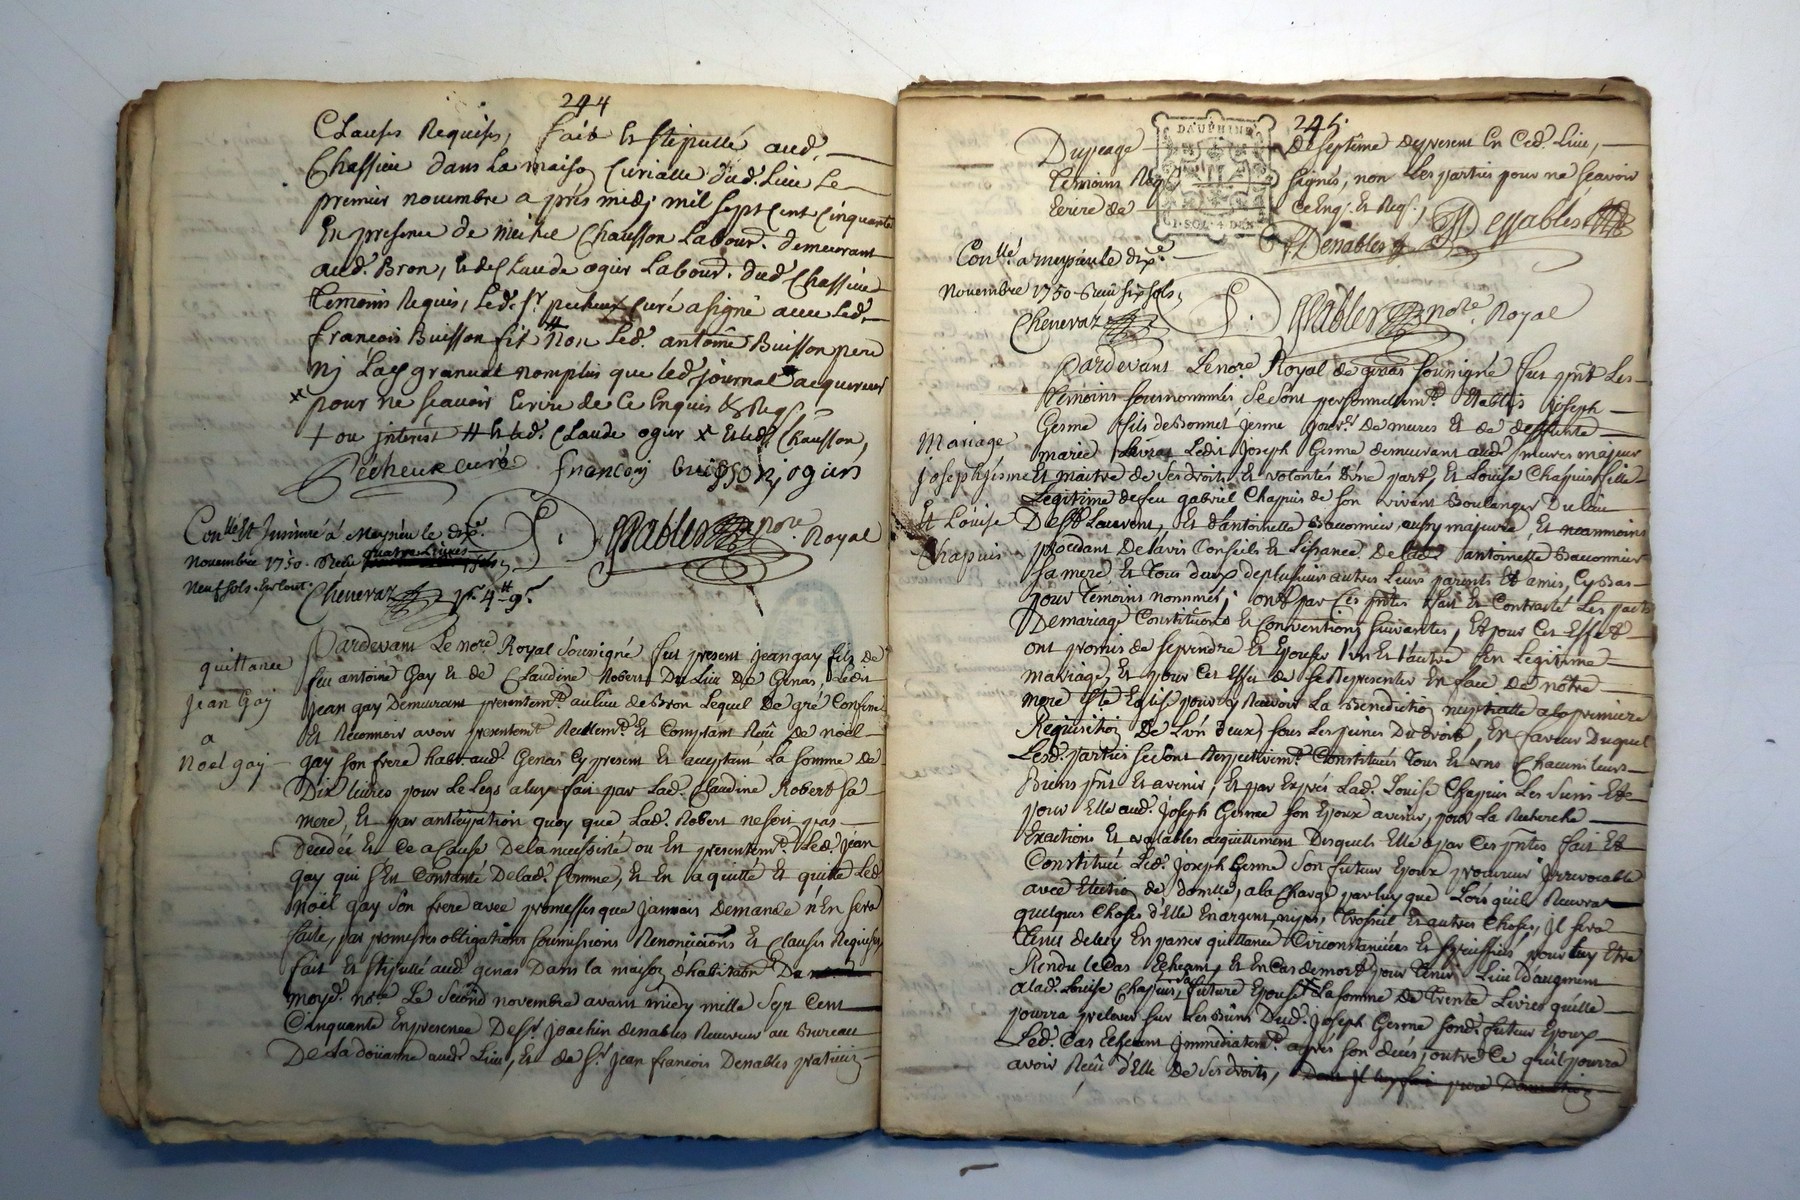 244
Clauses Requises, fait et stipullé aud.
Chassieu dans la maison Curialle dud. Lieu Le
premier novembre aprés midj mil sept Cent Cinquante
En presence de Chausson Labour. demeurant
aud. Bron, et de Claude ogier Labour. dud. Chassieu
temoins Requis, Led. Sr. curé a signé avec Led.
francois Buisson fils Non Led. antoine Buisson pere
nj nomplus que led. journal acquereur
pour ne scavoir Ecrire de Ce Enquis & Req.
+ ou interest Claude ogier x Chausson,
pecheur curé francoij buisson j ogier
Conllé Et Insinué à Meyzieu le dix.
novembre 1750. Receu
neuf sols
Chenevaz
nore. Royal
quittance
jean Gay
a
Noel gay
Pardevant Le nore. Royal Sousigné fut present jean gay fils de
feu antoine Gay et de Claudine Robert Du Lieu De Genas, Ledit
jean gay Demeurant presentemt. au lieu de Bron Lequel De gré Confesse
Et Reconnoit avoir presentemt. Reellemt. Et Comptant Reçû de noël
gay son frere habt. aud. Genas Cy present Et acceptant La Somme de
Dix livres pour Le Legs a luy fait par Lad. Claudine Robert sa
mere, Et par anticipation quoy que Lad. Robert ne soit pas
Decedée Et Ce a Cause De la necessité ou En presentemt. Led. jean
gay qui s'En Contente De lad. Somme, et En a quitté Et quitte Led.
Noël gay son frere avec promesses que jamais Demande n'En sera
faite, par promesses obligations soumissions Renonciations Et Clauses Requises,
fait Et stipullé aud. genas Dans la maison d'habitation
moyd. nore. Le second novembre avant midy mille Sept Cent
Cinquante En presence De Sr. joachin denables Receveur au Bureau
De La Doüanne aud. Lieu, Et de Sr. jean francois Denables praticien
245.
DAUPHINE
Dupeage De Septême Et present En Ced. Lieu,
temoins Req. signés, non Les parties pour ne scavoir
Ecrire de Ce Enq. Et Req.
Denables
Conllé. a meyzieu le dix.
Novembre 1750 Receu six sols
Chenevaz
nore. Royal
Mariage
joseph Gesme
Et Loüise
Chapuis
Pardevant Le nore. Royal de genas sousigné Et pnt Les
temoins sousnommés se sont personnellemt. Etablis joseph
Gesme fils de Bonnet jesme De mures Et de deffunte
marie Ledit joseph Gesme demeurant aud. mures majeur
Et maitre de ses droits Et volontés D'une part, Et Louise Chapuis fille
Legitime de feu gabriel Chapuis de son vivant Boulanger Du lieu
De St Laurent, Et d'antoinette Bauonnier aussy majeure, Et neanmoins
procedant De l'avis Conseils Et Licsance De lad. antoinette Bauonnier
sa mere Et Tous deux de plusieurs autres Leurs parents Et amis, Cy Bas
pour Temoins nommés; ont par Ces pntes fait Et Contracté Les pacts
De mariage Constitutions Et Conventions suivantes, Et pour Cet Effet
ont promis de se prendre Et Epouser L'un Et L'autre En Legitime
mariage, Et pour Cet Effet de se Representer En face de nôtre
mere Ste Eglise pour y Recevoir La Benediction nuptialle a la premiere
Requisition De L'un d'eux, sous Les peines Du droit, En faveur Duquel
Led. parties se sont Respectivemt. Constitués Tous Et uns Chacuns Leurs
Biens pnts Et avenir, Et par Exprés Lad. Louise Chapuis Les siens Et
pour Elle aud. Joseph Gesme son Epoux avenir, pour La Recherche
Exactions Et valables acquittement Desquels Elle a par Ces pntes fait Et
Constitué Led. joseph Gesme son futeur Epoux procureur jrrevocable
avec Election de domicile, a la Charge par luy que Lors qu'il Recevra
quelques Choses d'Elle En argent, nipes, Trossel Et autres Choses, jl sera
tenus de luy En passer quittance Circonstanciées Et speciffiées pour luy Etre
Rendu le Cas Echeant, Et En Cas de mort pour tenir Lieu D'augment
a lad. Louise Chapuis, sa future Epouse La somme De trente Livres qu'elle
pourra prelever sur Les Biens Dud. joseph Gesme sond. futeur Epoux
Led. Cas Echeant jmmediatemt. aprés son decés, outre Ce qu'il pourra
avoir Reçû d'Elle De ses droits,